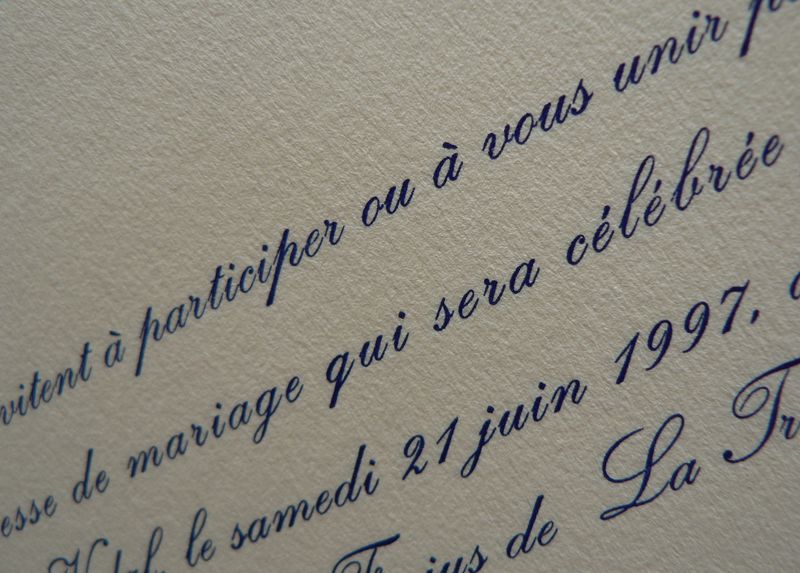 vitent à participer ou à vous unir
esse de mariage qui sera célébrée
le samedi 21 juin 1997,
de La Tr